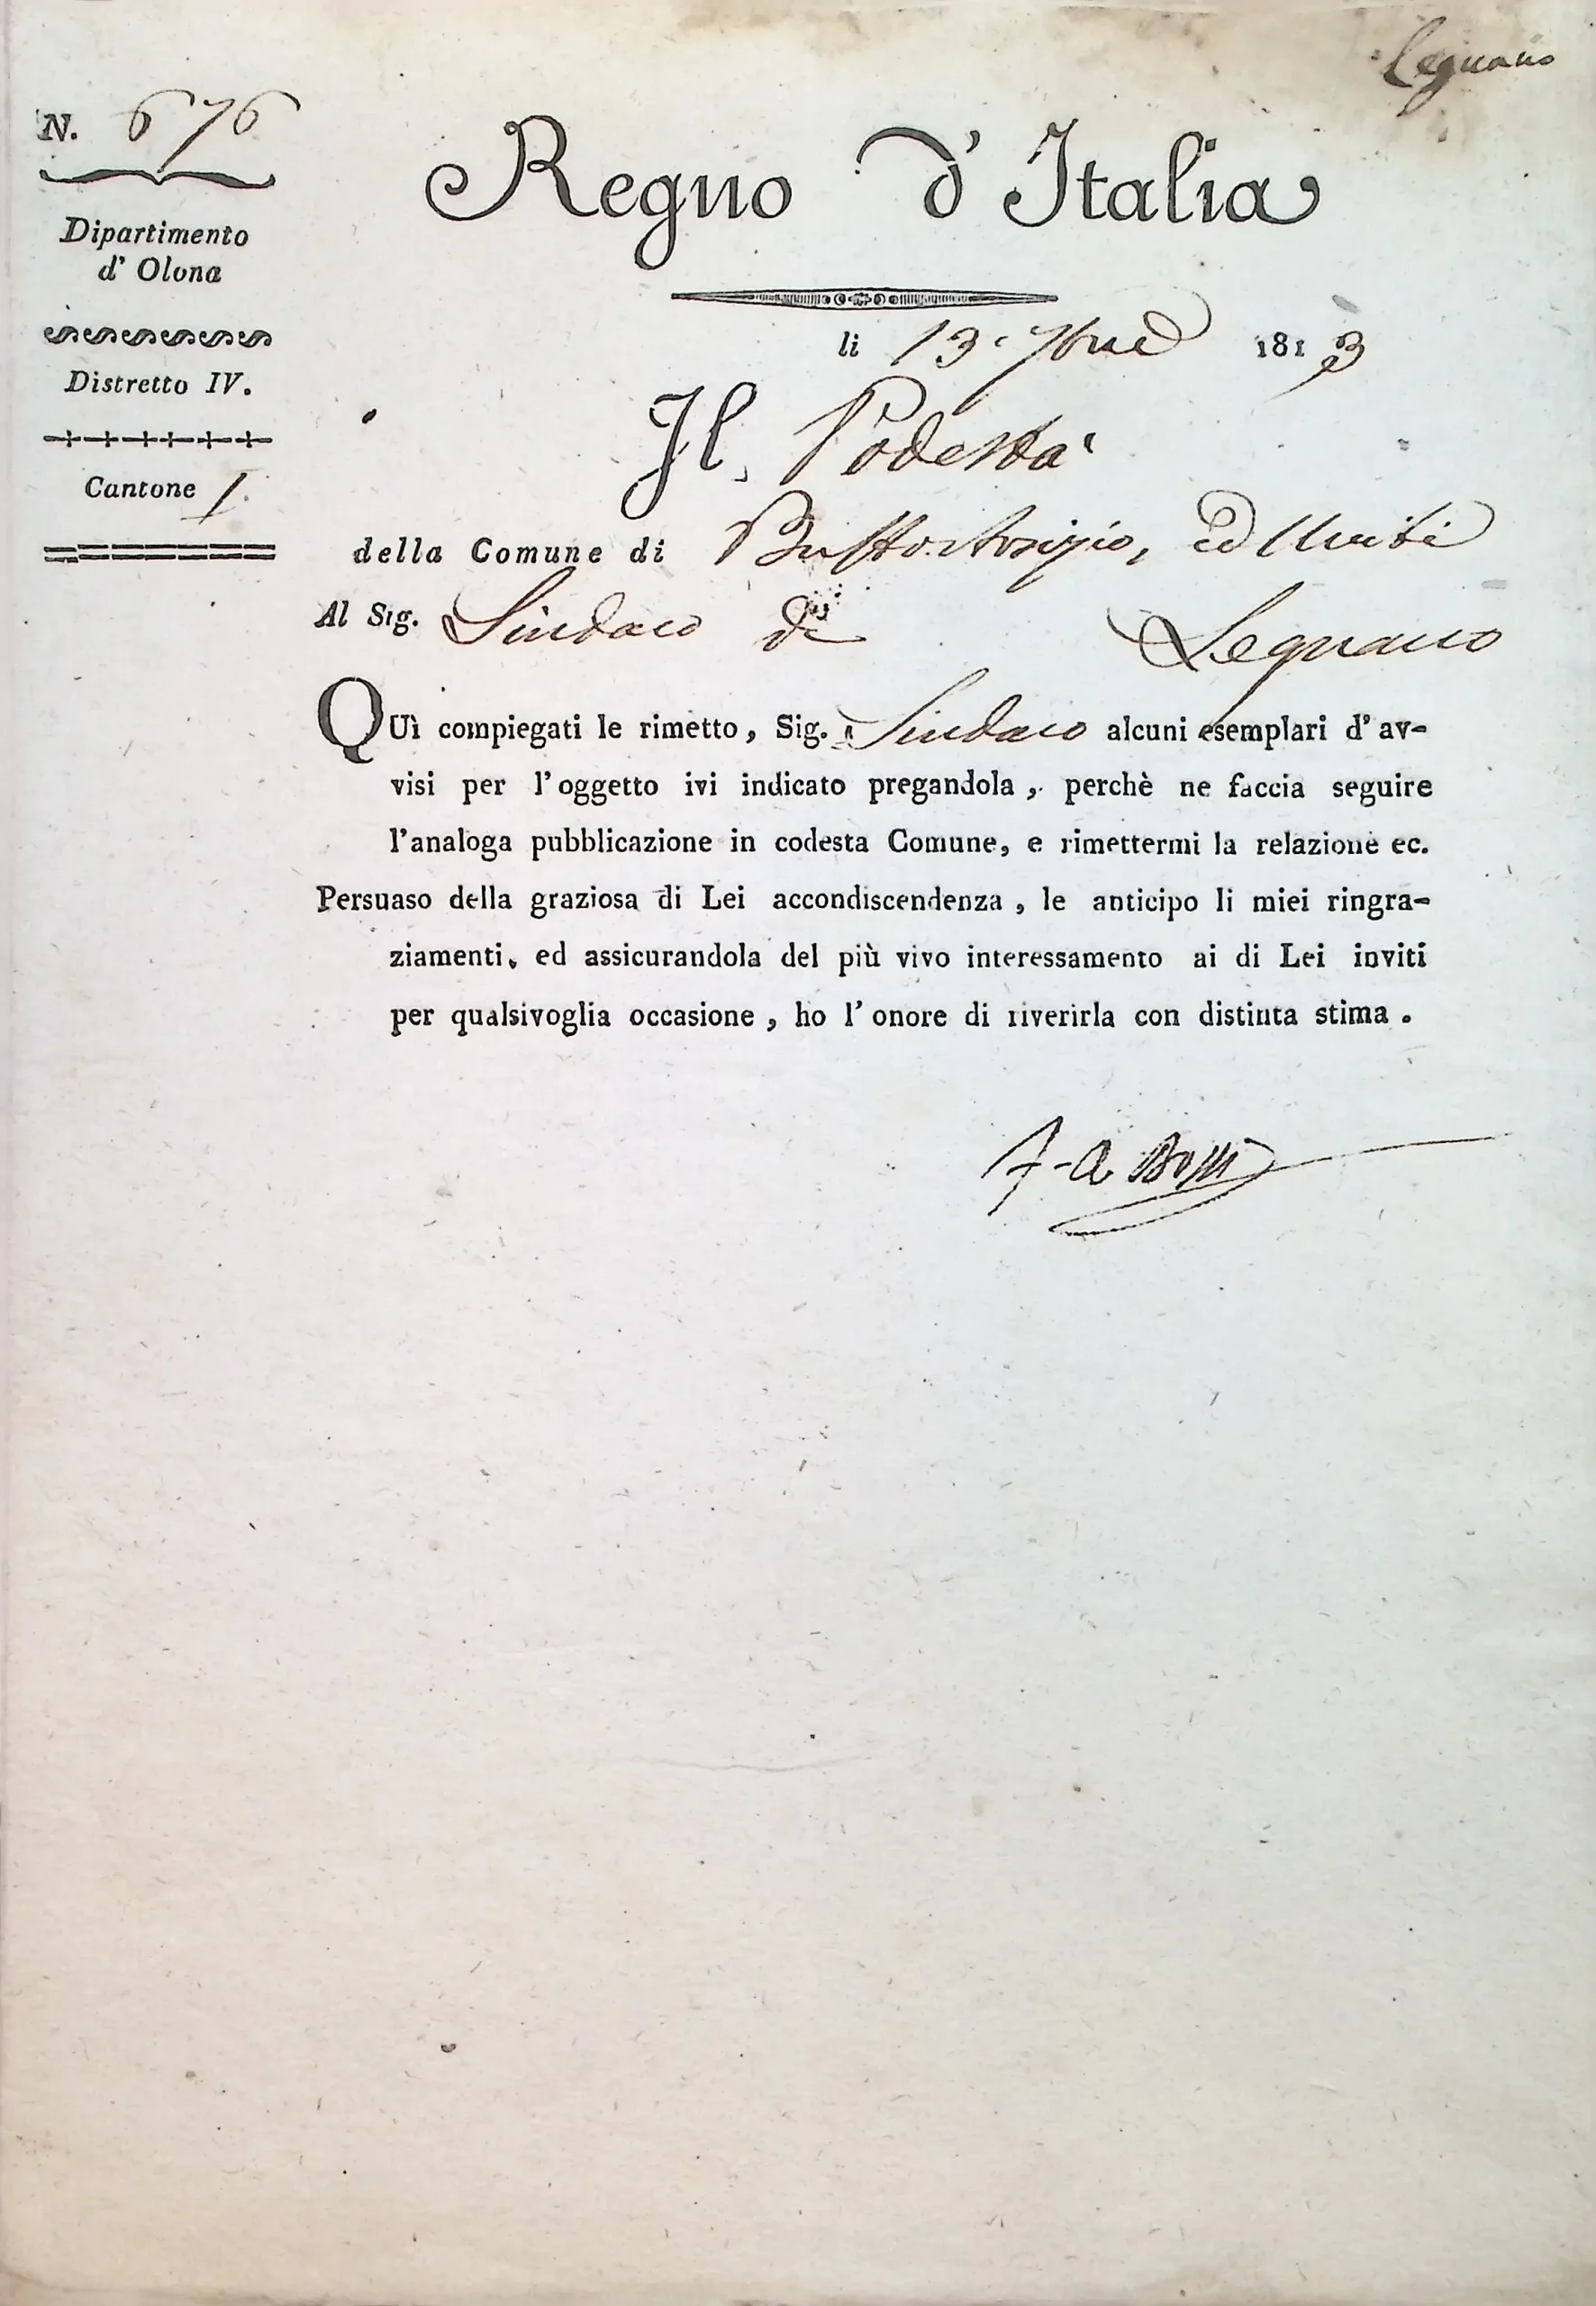 Legnano
N. 676
Regno d' Italia
Dipartimento
d' Olona
li 13. 7bre 1813
Distretto IV.
Il Podestà
Cantone I.
della Comune di Busto Arsizio, ed Uniti
Al Sig. Sindaco di Legnano
QUì compiegati le rimetto, Sig. Sindaco alcuni esemplari d' av-
visi per l'oggetto ivi indicato pregandola, perchè ne faccia seguire
l'analoga pubblicazione in codesta Comune, e rimettermi la relazione ec.
Persuaso della graziosa di Lei accondiscendenza, le anticipo li miei ringra-
ziamenti, ed assicurandola del più vivo interessamento ai di Lei inviti
per qualsivoglia occasione, ho l'onore di riverirla con distinta stima.
F-A Bossi